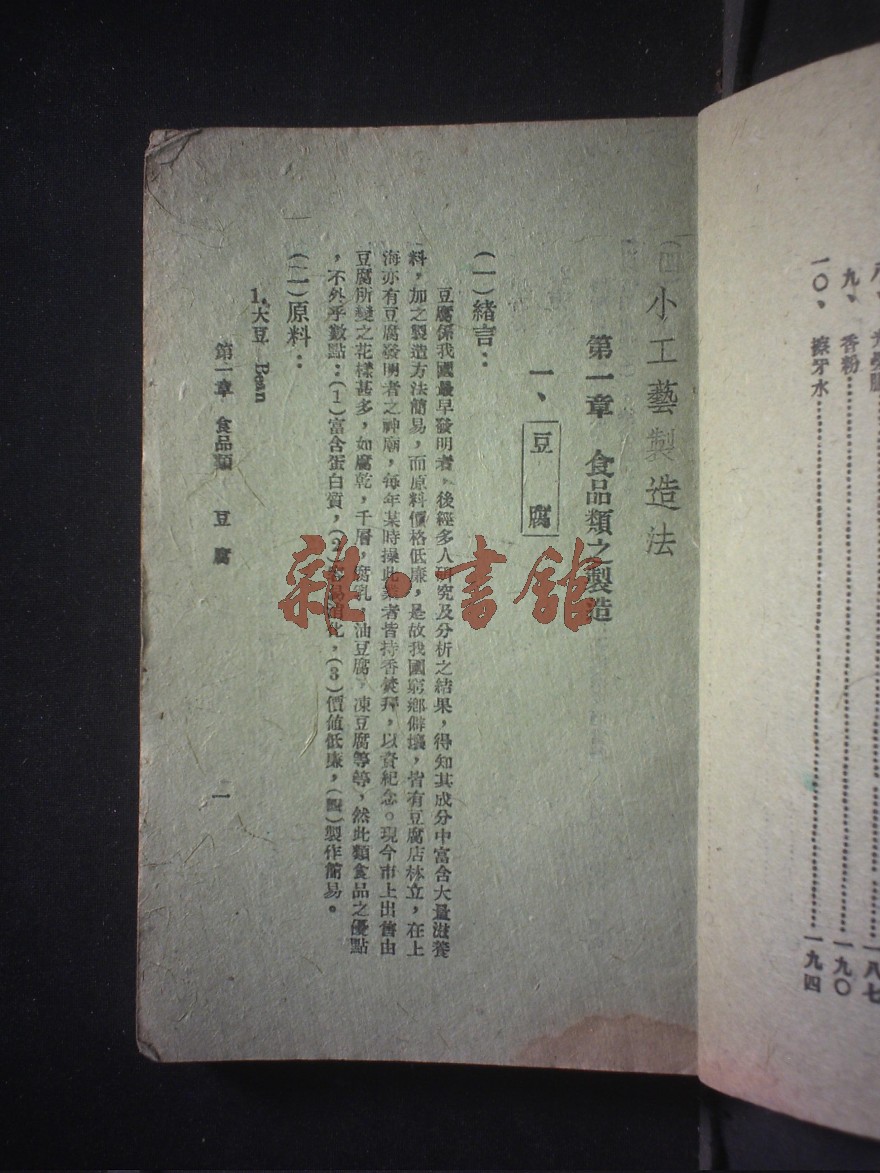 八、
九、香粉……一九〇
一〇、擦牙水……一九四
小工藝製造法
第一章 食品類之製造
一、豆腐
(一)緒言：
豆腐係我國最早發明者，後經多人研究及分析之結果，得知其成分中富含大量滋養
料，加之製造方法簡易，而原料價格低廉，是故我國窮鄉僻壤，皆有豆腐店林立，在上
海亦有豆腐發明者之神廟，每年某時操此業者皆持香焚拜，以資紀念。現今市上出售由
豆腐所變之花樣甚多，如腐乾，千層，腐乳，油豆腐，凍豆腐等等，然此類食品之優點
，不外乎數點：(1)富含蛋白質，(2)容易消化，(3)價值低廉，(四)製作簡易。
(二)原料：
1.大豆 Bean
第一章 食品類 豆腐
一
雜·書館